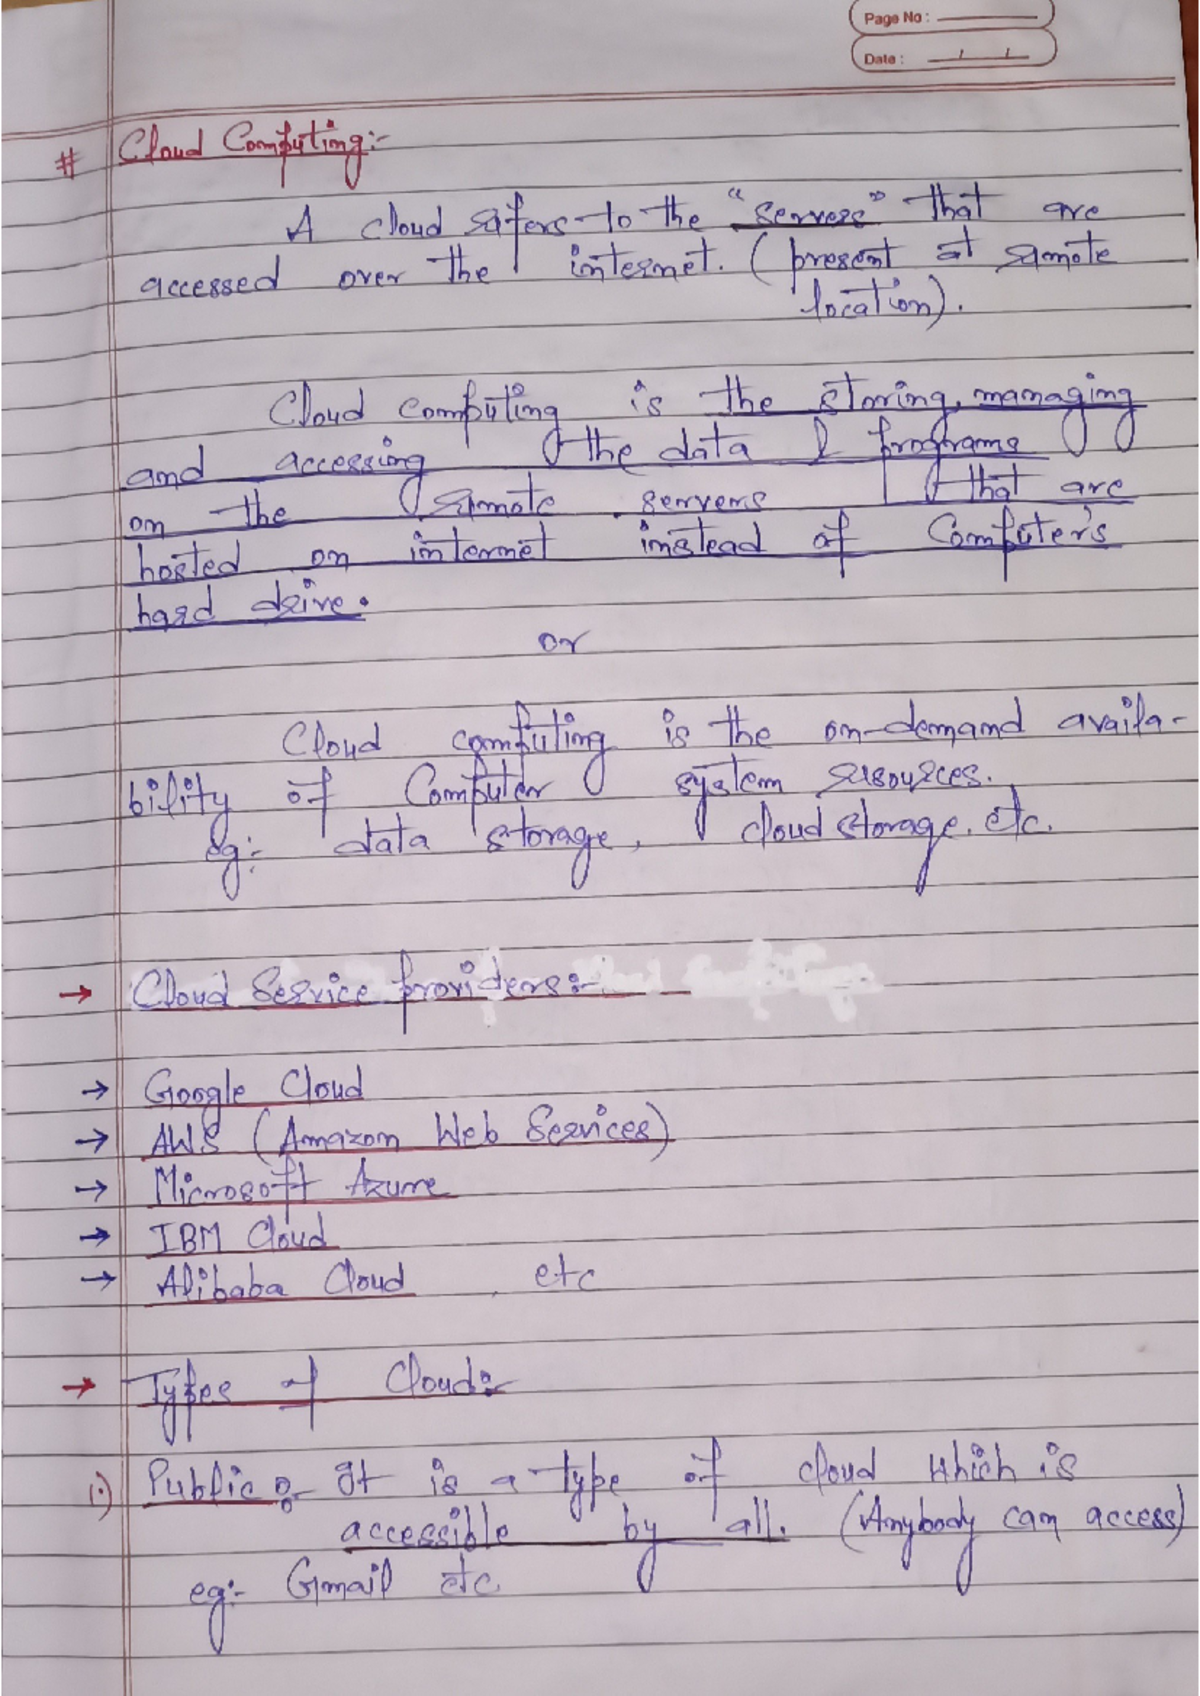 Page No :
Date :
# Cloud Computing:-
A cloud refers to the "servers" that are
accessed over the internet. (present at remote
location).
Cloud computing is the storing, managing
and accessing the data & programs
on the remote servers that are
hosted on internet instead of Computer's
hard drive.
or
Cloud computing is the on-demand availa-
bility of Computer system resources.
eg:- data storage, cloud storage. etc.
→ Cloud Service providers:-
→ Google Cloud
→ AWS (Amazon Web Services)
→ Microsoft Azure
→ IBM Cloud
→ Alibaba Cloud etc
→ Types of Cloud:-
i) Public :- It is a type of cloud which is
accessible by all. (Anybody can access)
eg:- Gmail etc